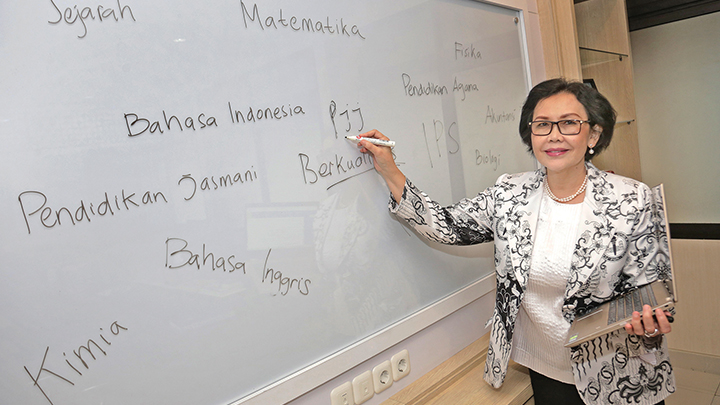 Sejarah
Matematika
Fisika
Pendidikan Agama
Bahasa Indonesia
Pjj
Akuntansi
IPS
Berkuali
Biologi
Pendidikan Jasmani
Bahasa Inggris
Kimia